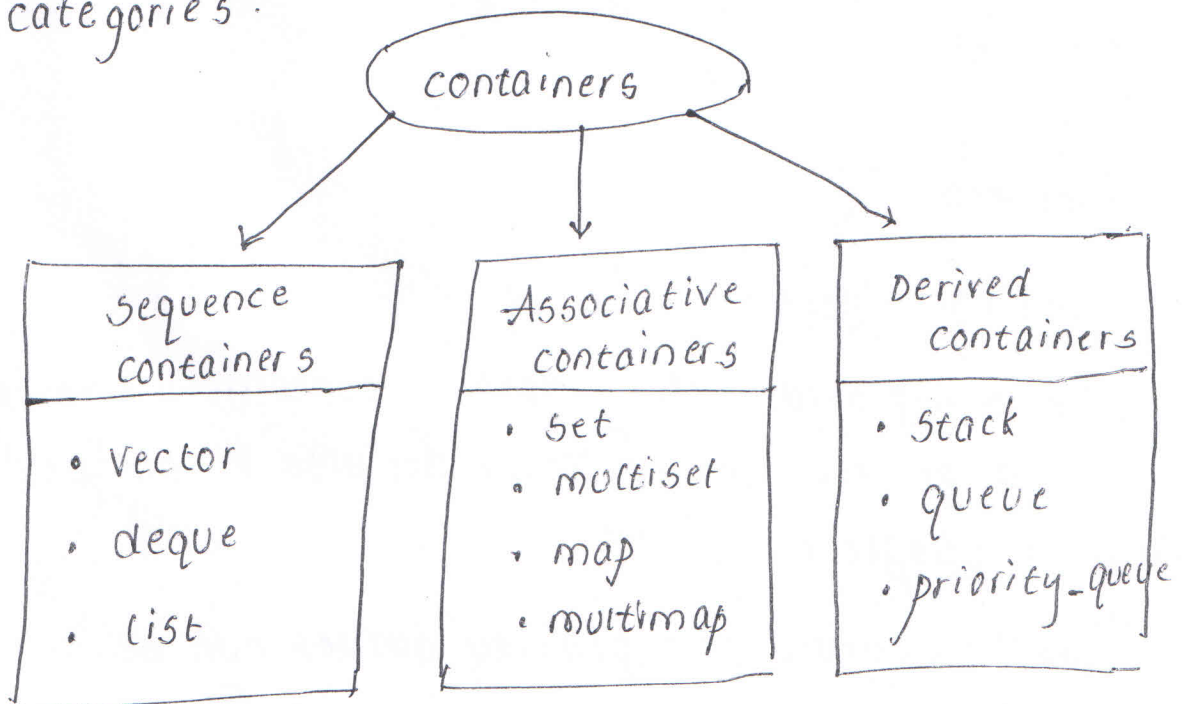 categories.
containers
sequence
containers
• vector
• deque
• list
Associative
containers
• set
• multiset
• map
• multimap
Derived
containers
• stack
• queue
• priority_queue